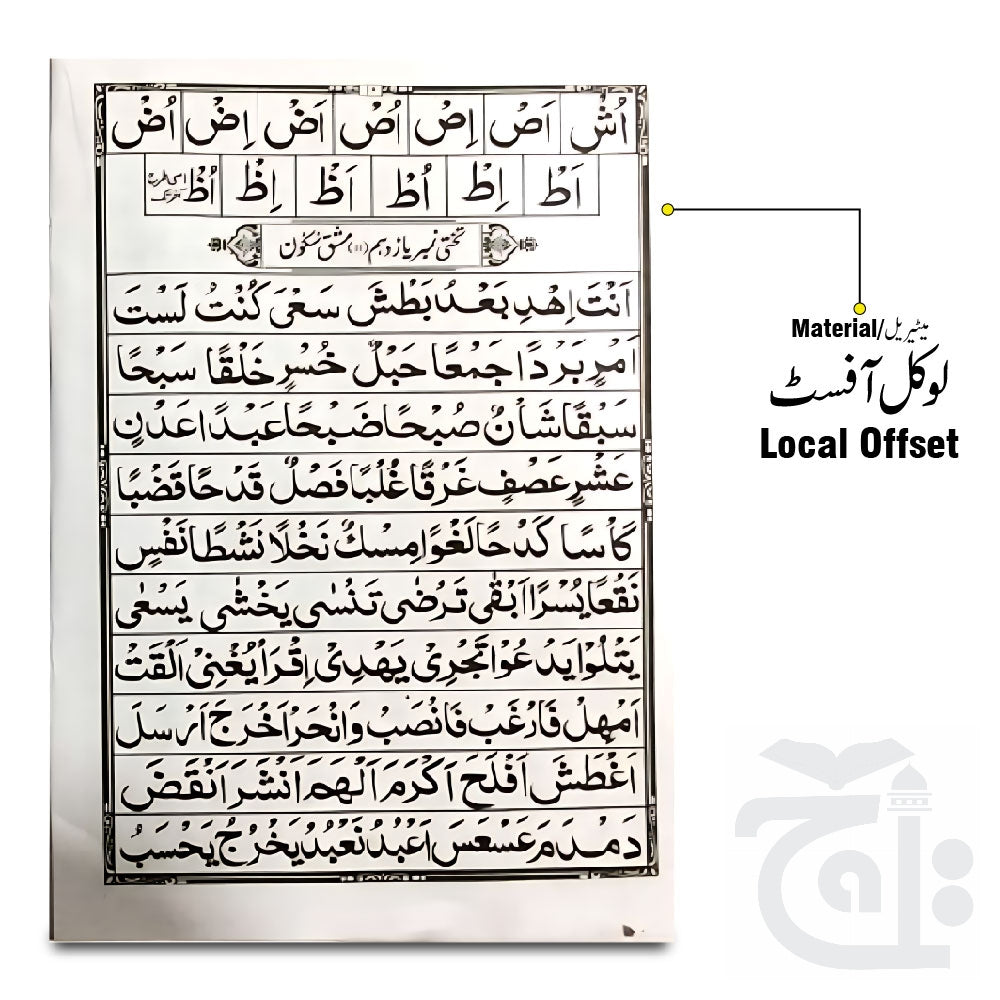 اُشْ اَصْ اِصْ اُصْ اَضْ اِضْ اُضْ
اَطْ اِطْ اُطْ اَظْ اِظْ اُظْ
تختی نمبر یازدہم (۱۱) مشق سُکُون
اَنْتَ اِهْدِ بَعْدُ بَطْشَ سَعْیَ كُنْتُ لَسْتَ
اَمْرٍ بَرْدًا جَمْعًا حَبْلٌ خُسْرٍ خَلْقًا سَبْحًا
سَبْقًا شَاْنٌ صُبْحًا ضَبْحًا عَبْدًا عَدْنٍ
عَشْرٍ عَصْفٍ غَرْقًا غُلْبًا فَصْلٌ قَدْحًا قَضْبًا
كَاْسًا كَدْحًا لَغْوًا مِسْكٌ نَخْلًا نَشْطًا نَفْسٍ
نَقْعًا یُسْرًا اَبْقٰی تَرْضٰی تَنْسٰی یَخْشٰی یَسْعٰی
یَتْلُوْا یَدْعُوْا تَجْرِیْ یَهْدِیْ اِقْرَاْ یُغْنِیْ اَلْقَتْ
اَمْهِلْ فَارْغَبْ فَانْصَبْ وَانْحَرْ اَخْرَجَ اَرْسَلَ
اَغْطَشَ اَفْلَحَ اَكْرَمَ اَلْهَمَ اَنْشَرَ اَنْقَضَ
دَمْدَمَ عَسْعَسَ اَعْبُدُ نَعْبُدُ یَخْرُجُ یَحْسَبُ
Material/میٹیریل
لوکل آفسٹ
Local Offset